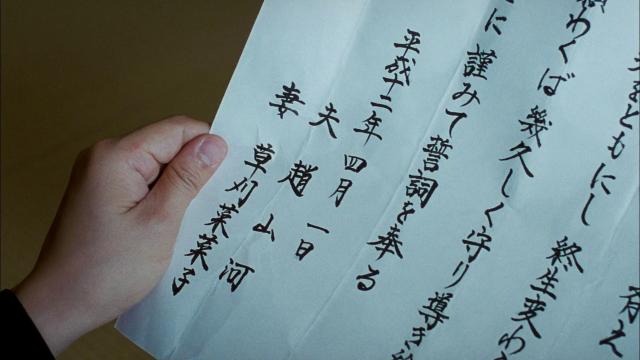 ともにし 終生変わ
わくば 幾久しく守り導き
に 謹みて誓詞を奉る
平成十二年 四月 一日
夫 趙 山河
妻 草刈 菜菜子